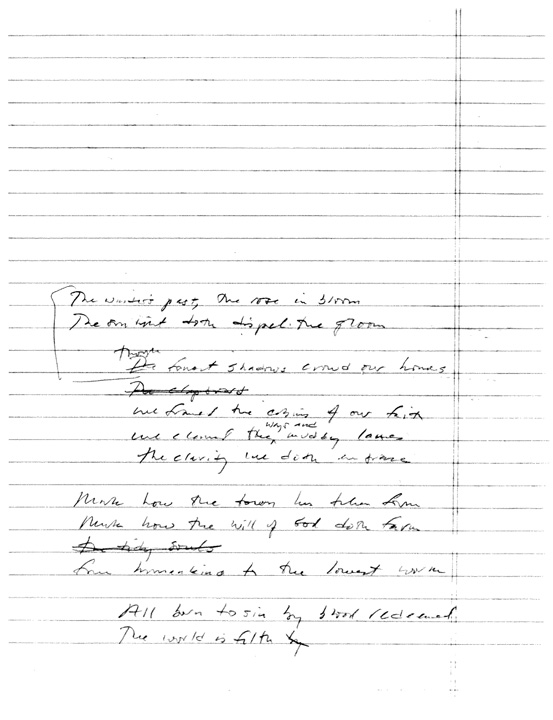 The winter's past, the rose in bloom
The sunlight doth dispel the gloom
though
The forest shadows crowd our homes
The clapboard
we framed the cabins of our faith
ways and
we cleared the muddy lanes
the clarity we doth
Mark how the town has taken form
Mark how the will of God doth form
the tidy souls
from humankind to the lowest worm
All born to sin by blood redeemed
The world is filth by